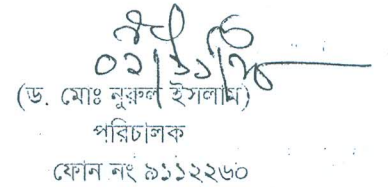 (ড. মোঃ নুরুল ইসলাম)
পরিচালক
ফোন নং ৯১১২২৬০